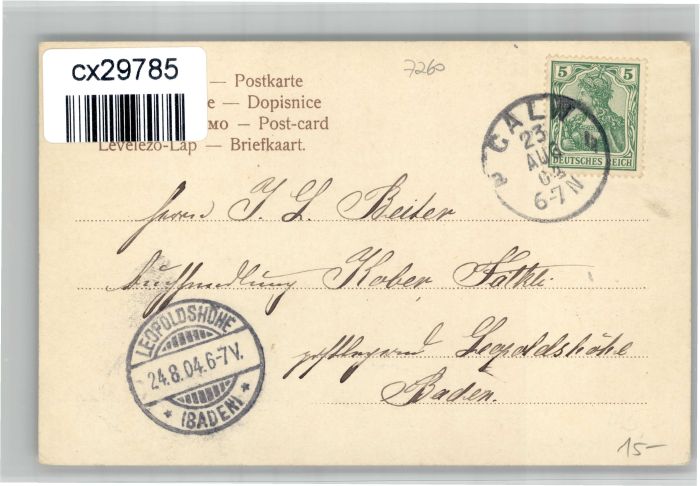 cx29785
— Postkarte
e — Dopisnice
мо — Post-card
Levelezö-Lap — Briefkaart.
7260
5 5
DEUTSCHES REICH
CALW
23
AUG
6-7 N
Herrn J. G. Beiter
Buchhandlung Kober
postlagernd Leopoldshöhe
Baden.
LEOPOLDSHÖHE
24.8.04.6-7V.
* (BADEN) *
15-